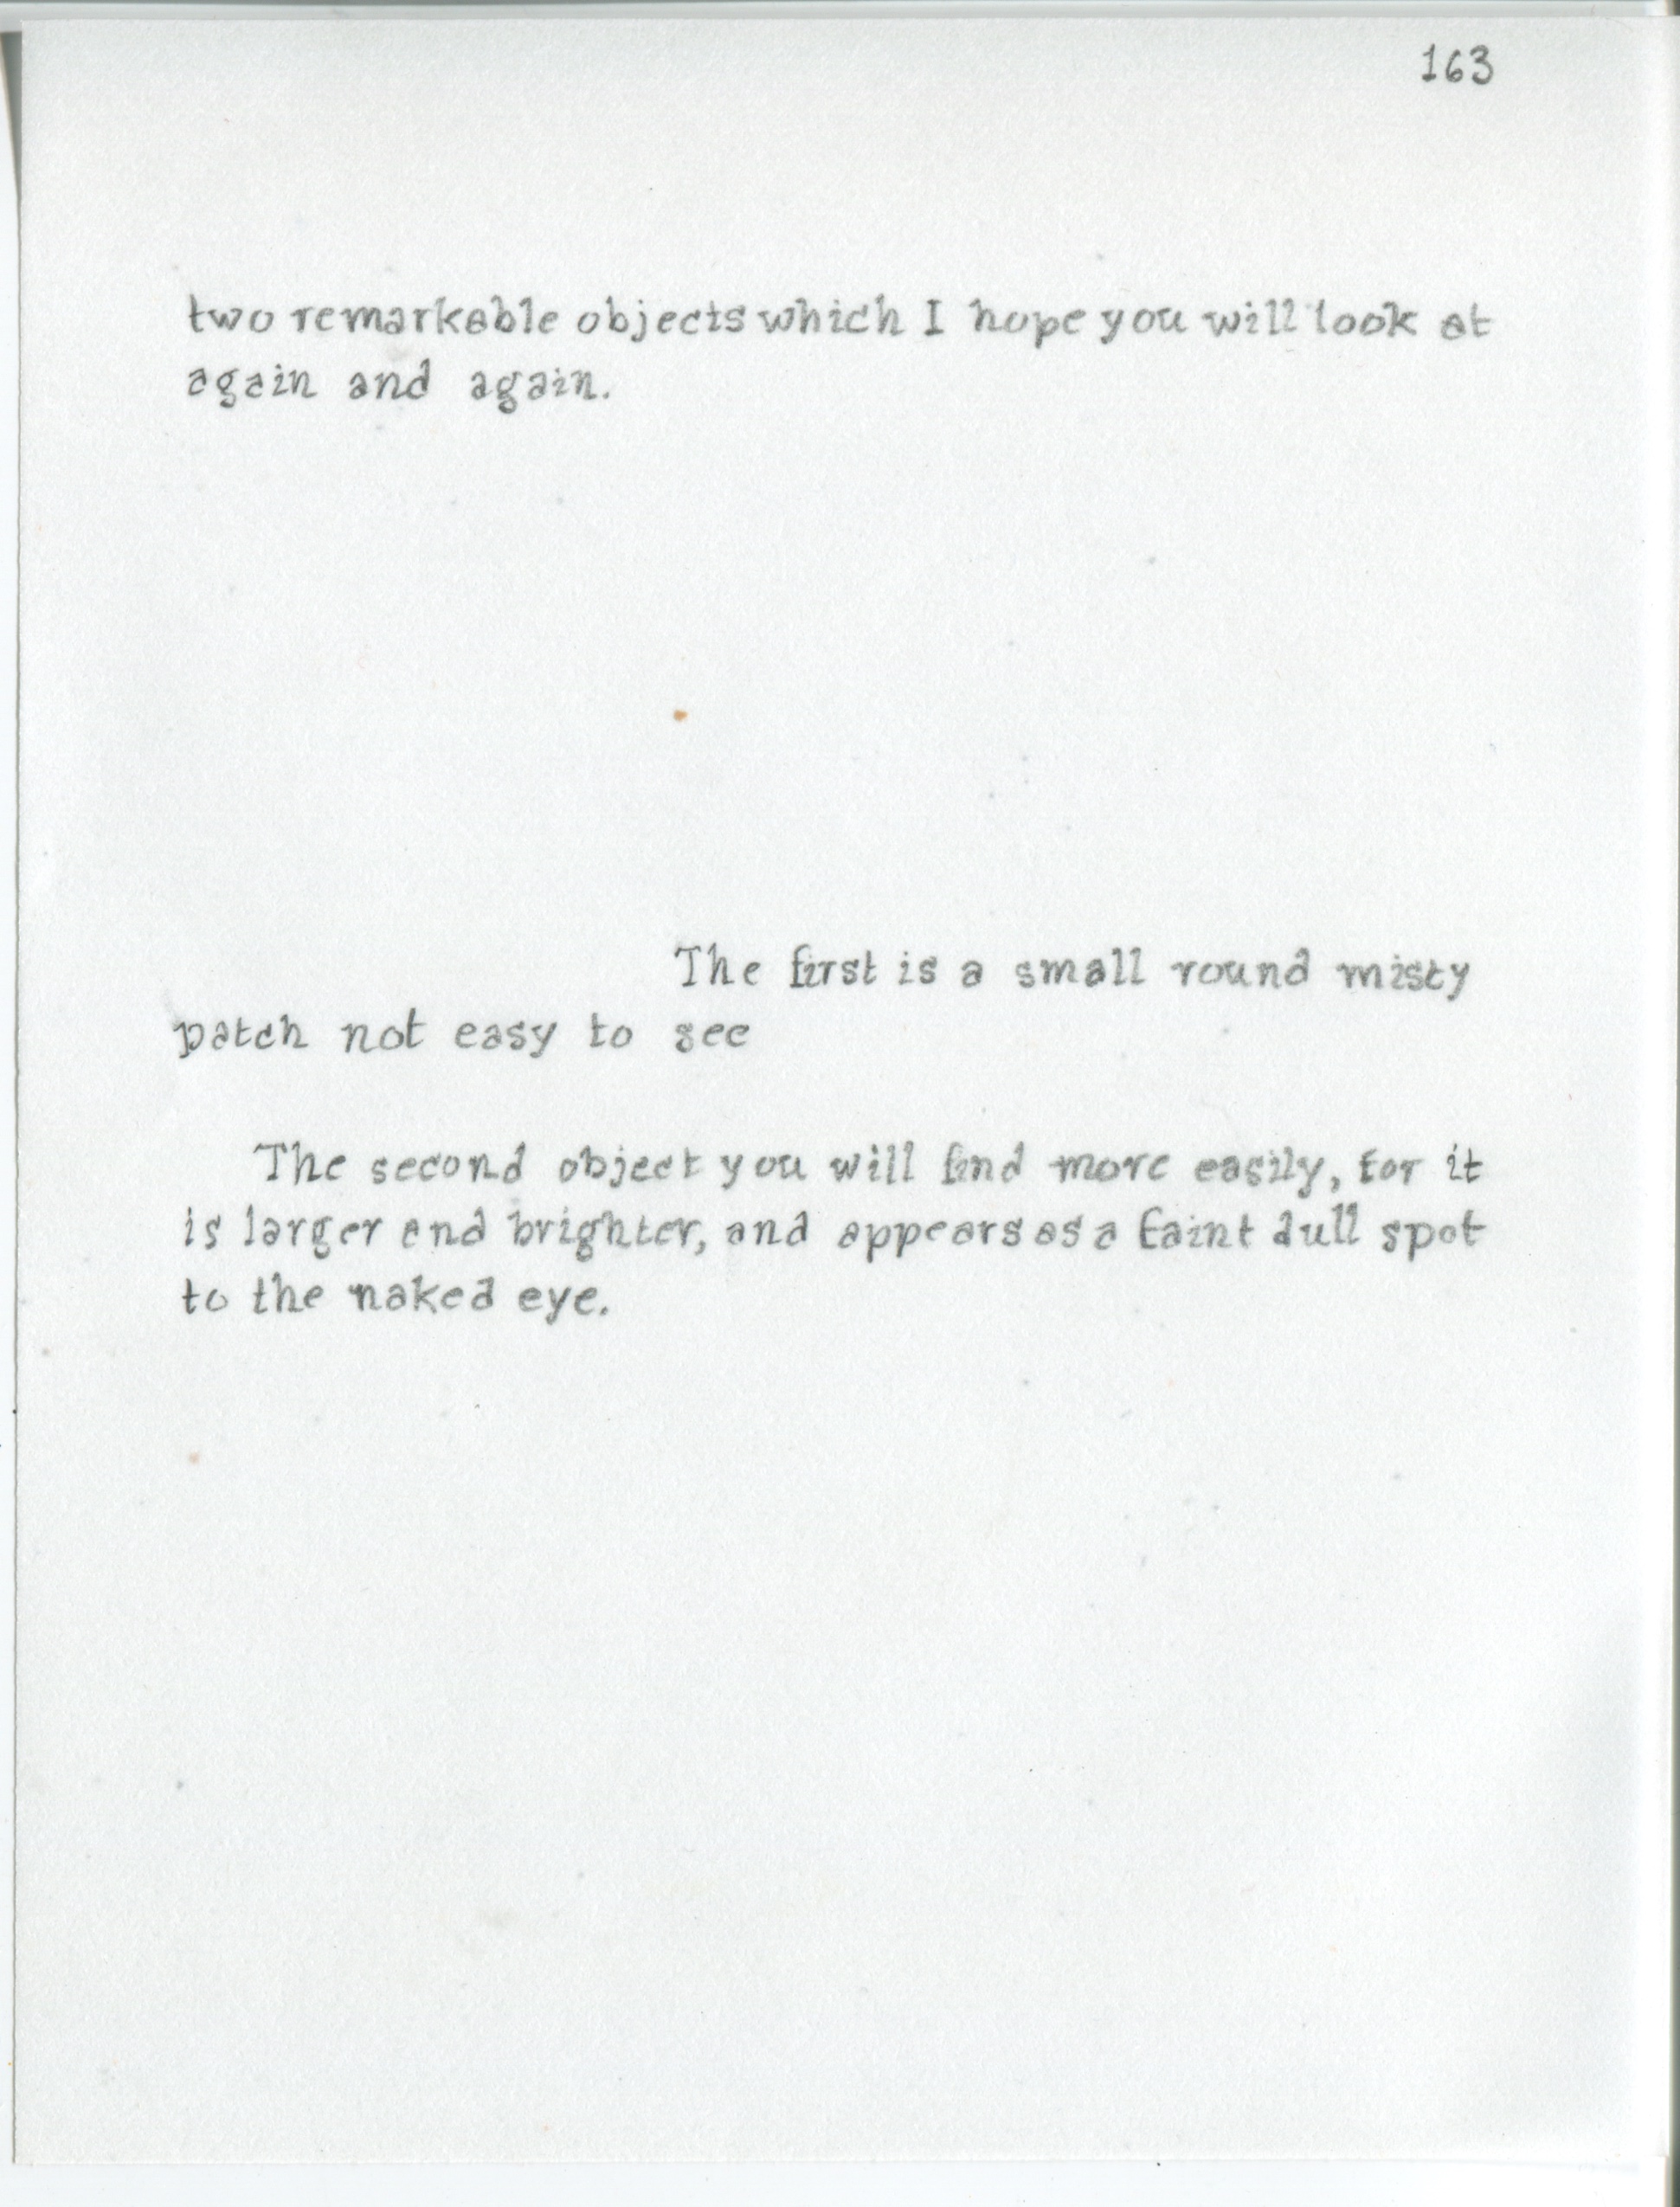 163
two remarkable objects which I hope you will look at
again and again.
The first is a small round misty
patch not easy to see
The second object you will find more easily, for it
is larger and brighter, and appears as a faint dull spot
to the naked eye.